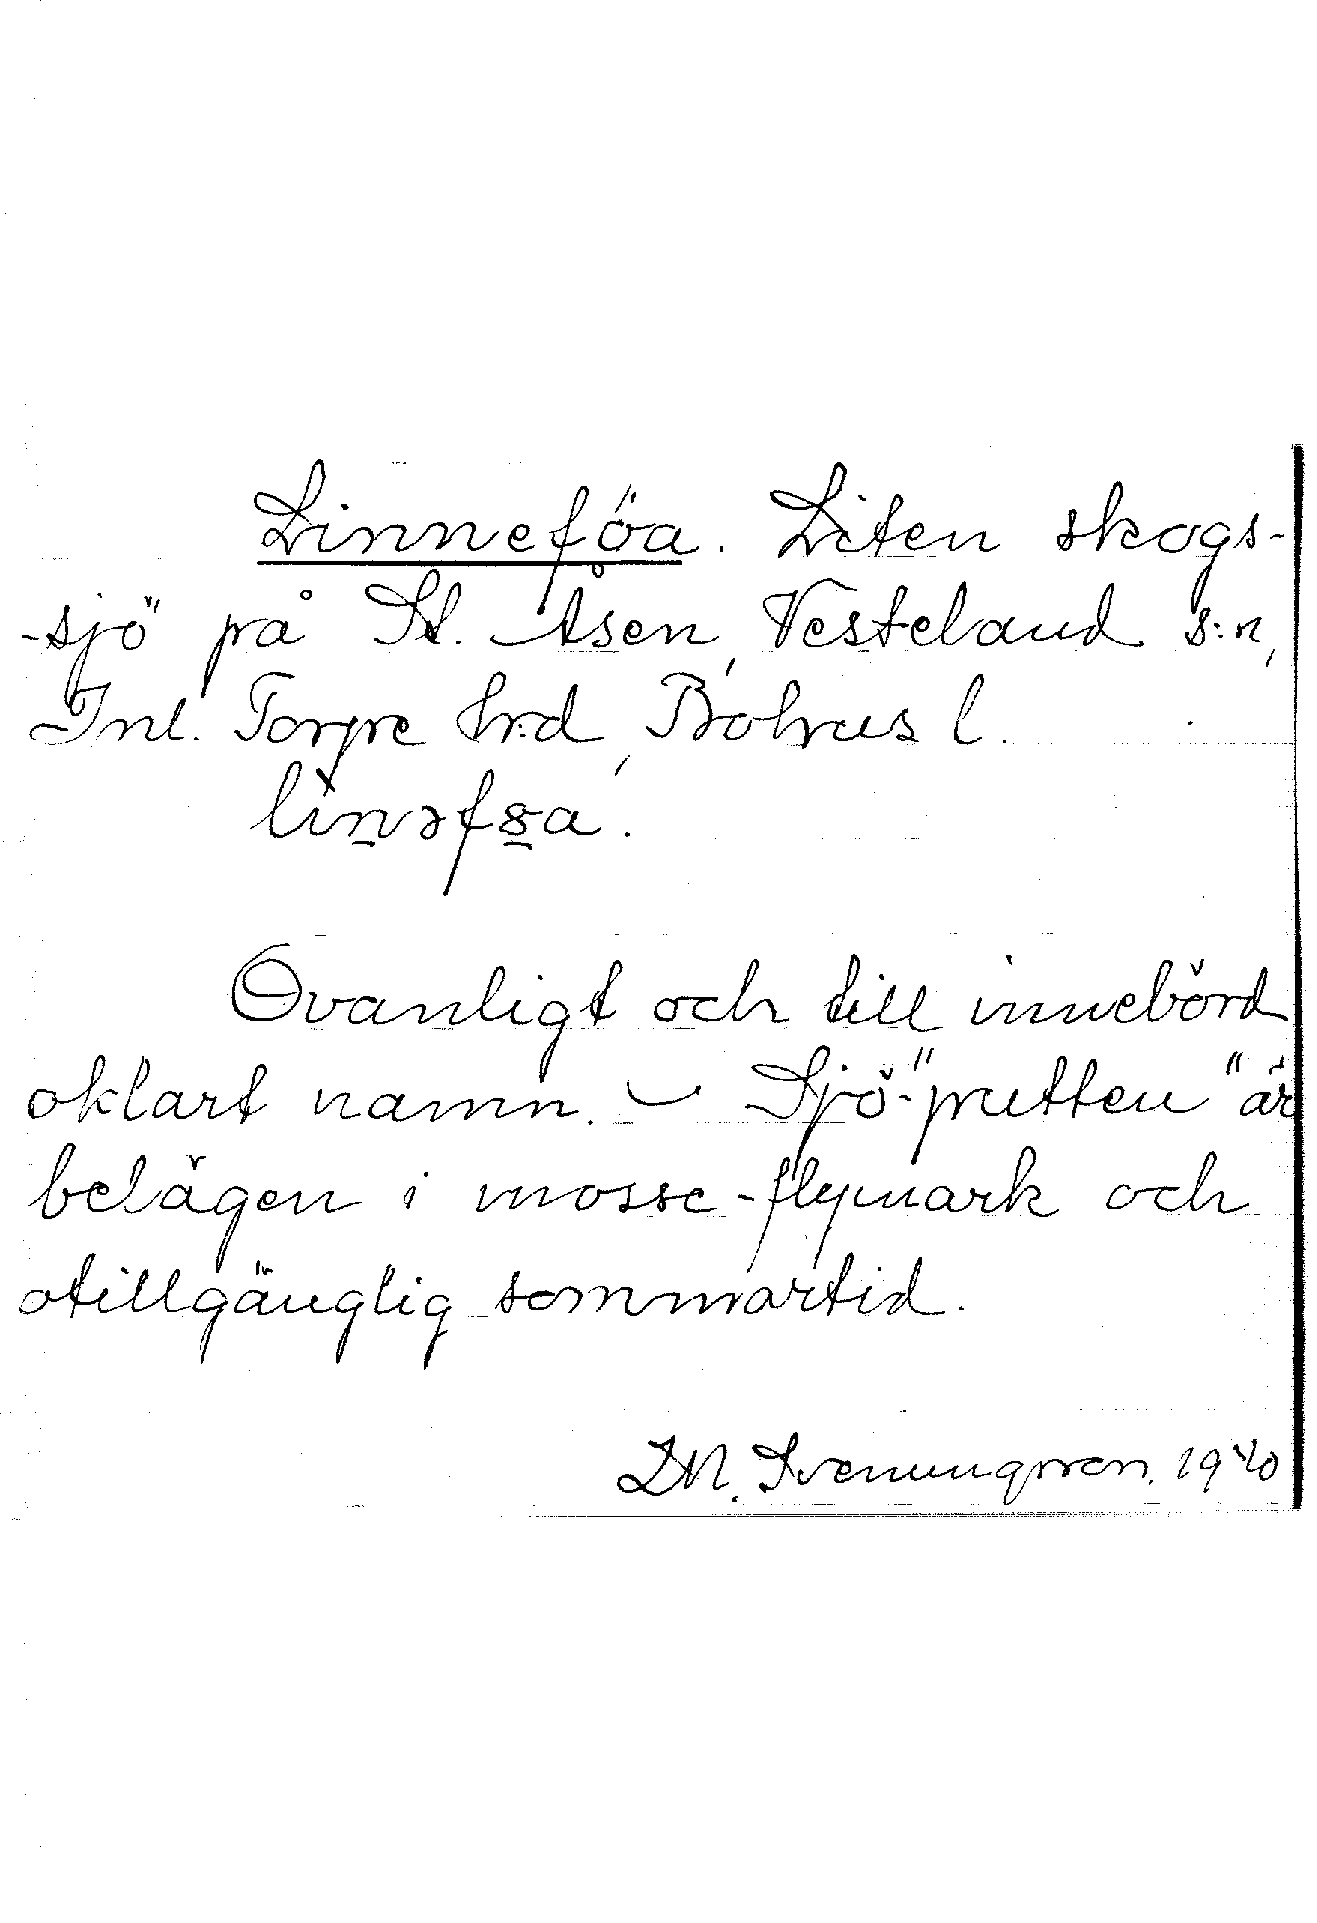 Linneföa. Liten skogs-
-sjö på St. Åsen, Vesteland s:n,
Inl. Torpe hrd, Bohus l.
lìn̠əfȣ̠a.
Ovanligt och till innebörd
oklart namn. – Sjö-"putten" är
belägen i mosse-flymark och
otillgänglig sommartid.
D.N. Svenungsson. 1940